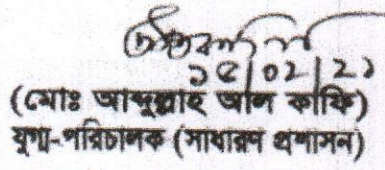 ১৫|০২|২১
(মোঃ আব্দুল্লাহ আল কাফি)
যুগ্ম-পরিচালক (সাধারন প্রশাসন)